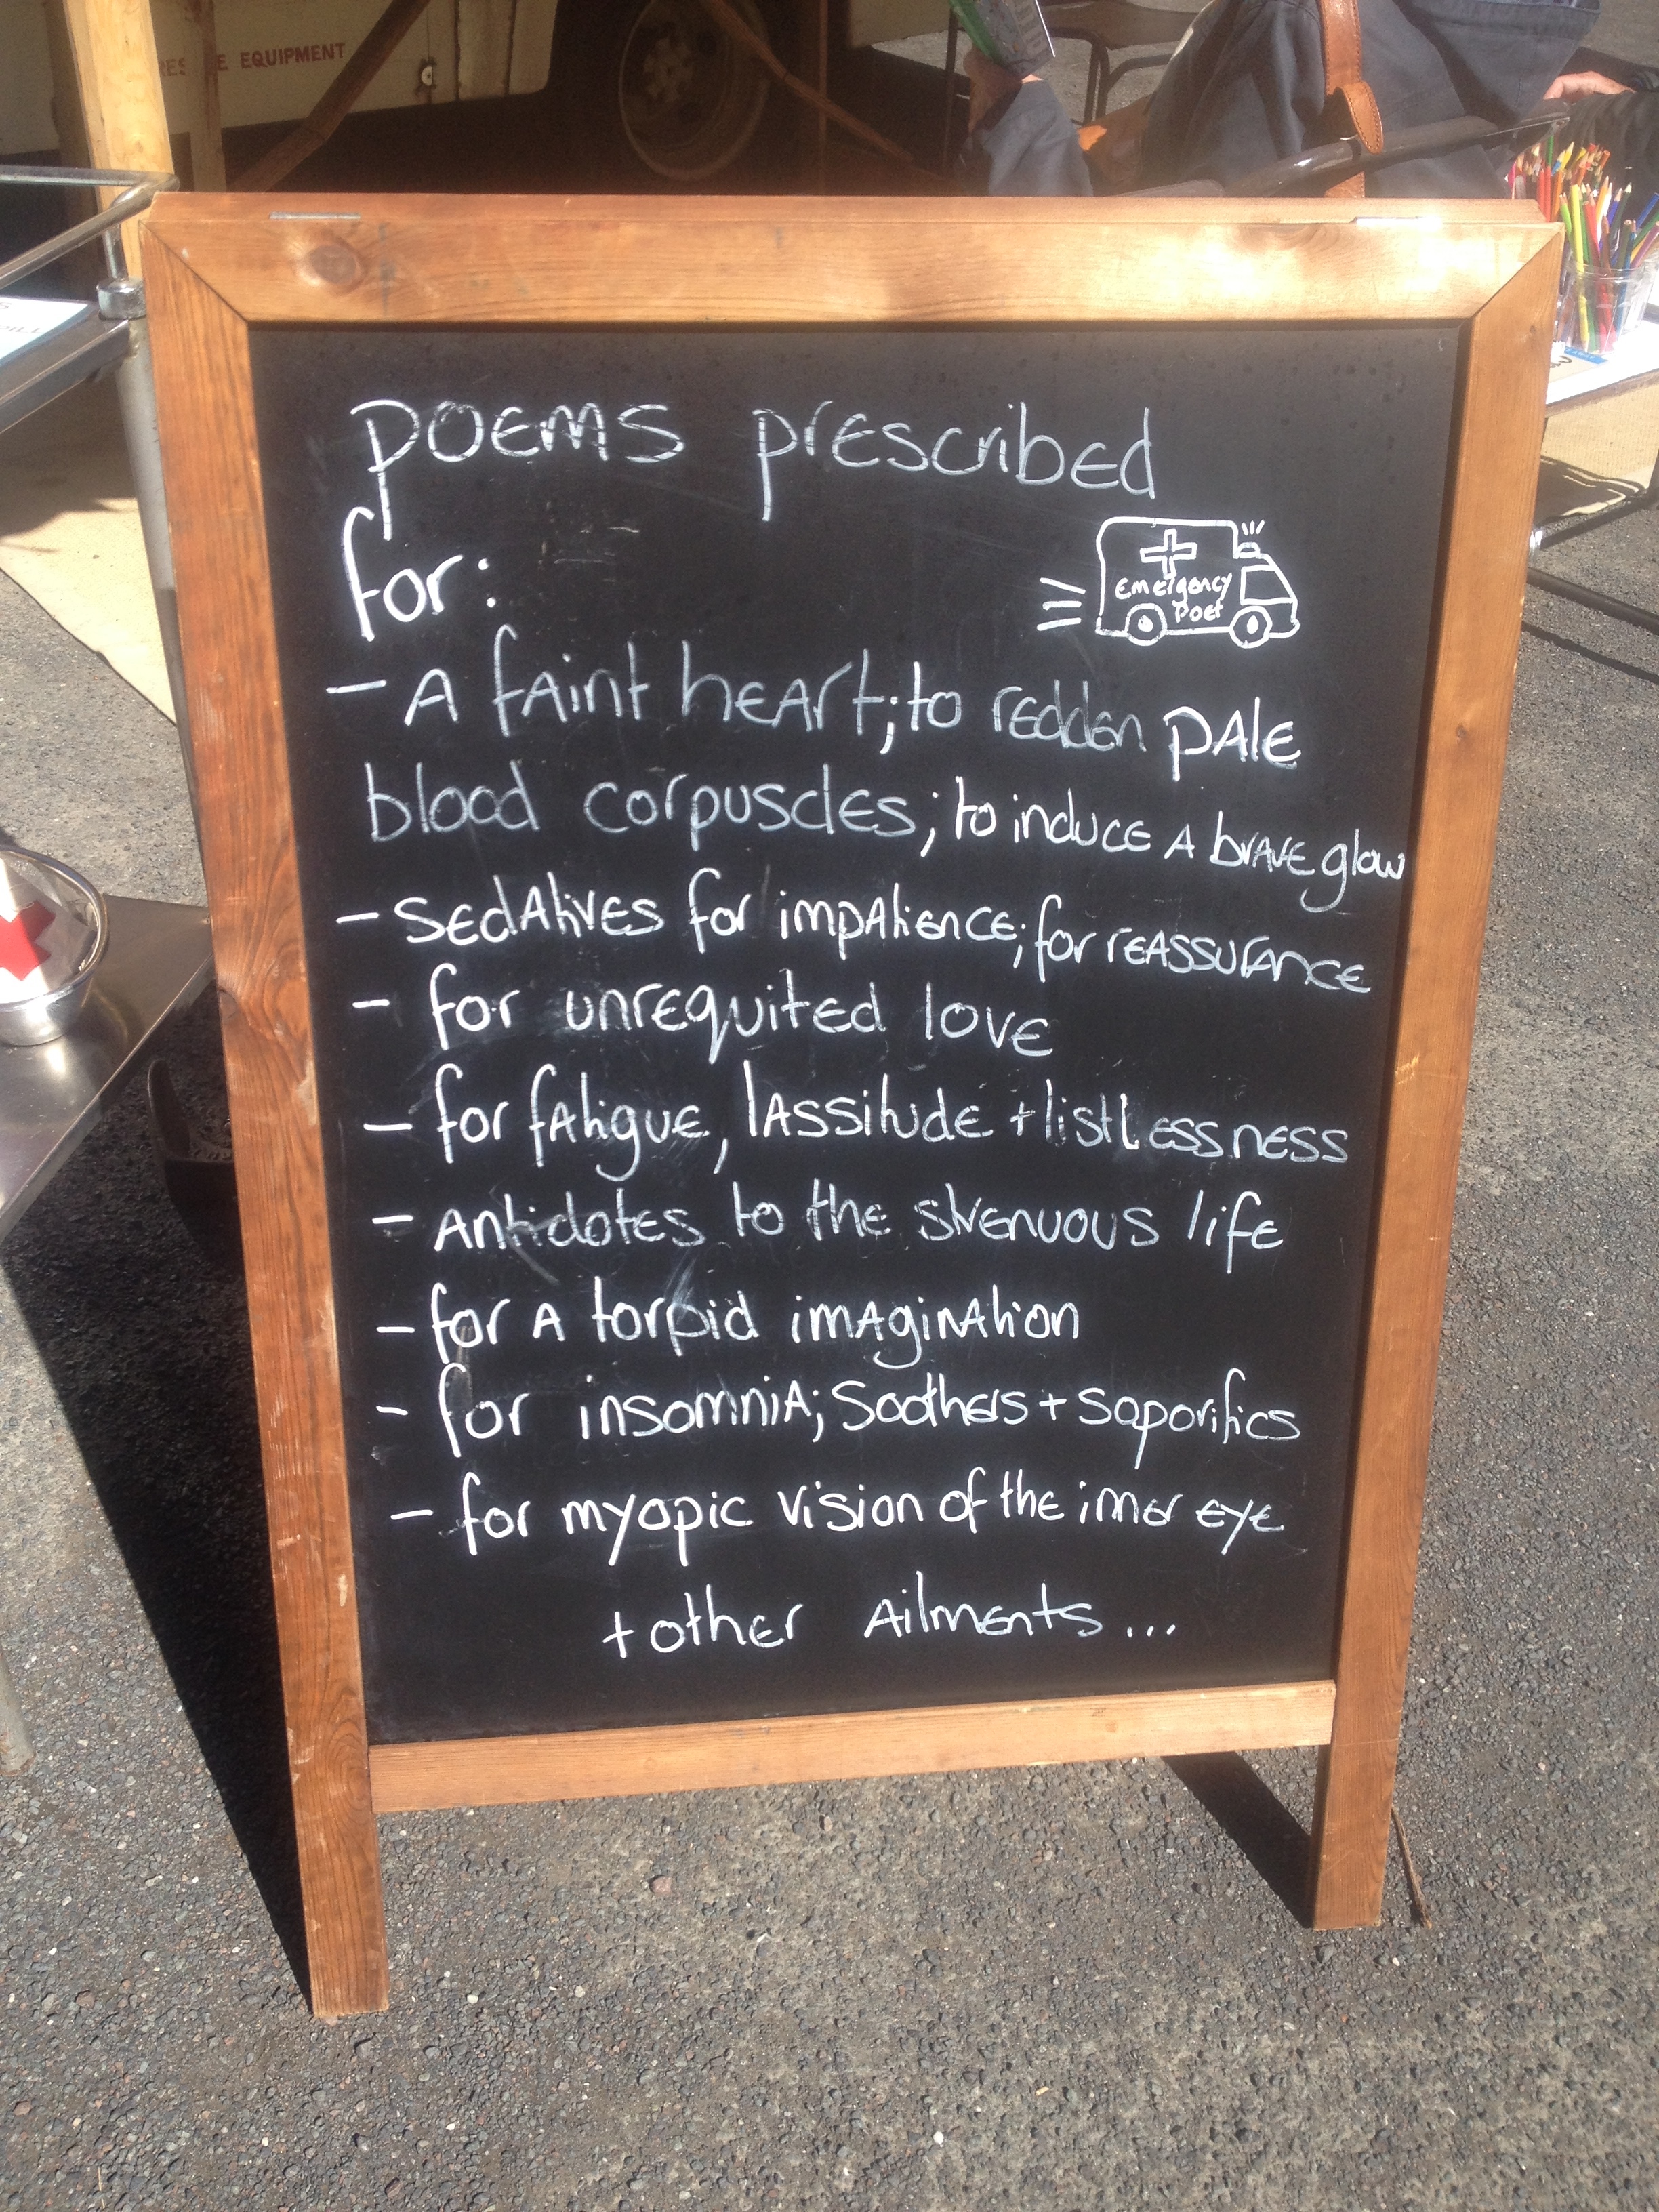 EQUIPMENT
POEMS prescribed
for:
Emergency
Poet
- A faint heart; to redden pale
blood corpuscles; to induce a brave glow
- Sedatives for impatience; for reassurance
- for unrequited love
- for fatigue, lassitude + listlessness
- Antidotes to the strenuous life
- for a torpid imagination
- for insomnia; Soothers + Soporifics
- for myopic vision of the inner eye
+ other Ailments...